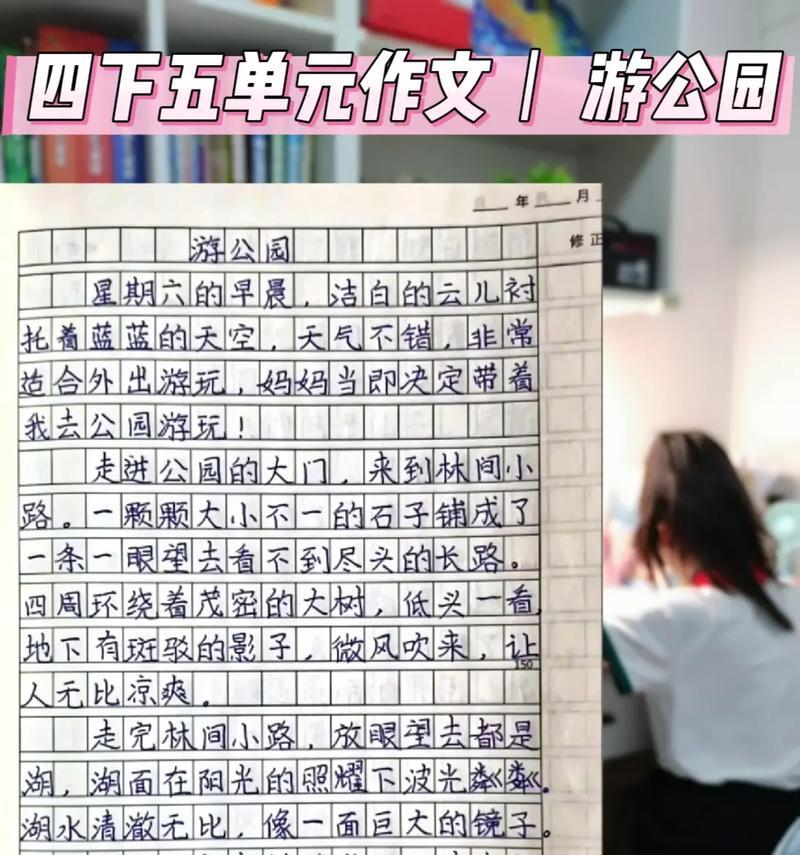 四下五单元作文 | 游公园
年 月
修正
游公园
星期六的早晨，洁白的云儿衬
托着蓝蓝的天空，天气不错，非常
适合外出游玩，妈妈当即决定带着
我去公园游玩！
走进公园的大门，来到林间小
路。一颗颗大小不一的石子铺成了
一条一眼望去看不到尽头的长路。
四周环绕着茂密的大树，低头一看，
地下有斑驳的影子，微风吹来，让
150
人无比凉爽。
走完林间小路，放眼望去都是
湖，湖面在阳光的照耀下波光粼粼。
湖水清澈无比，像一面巨大的镜子。